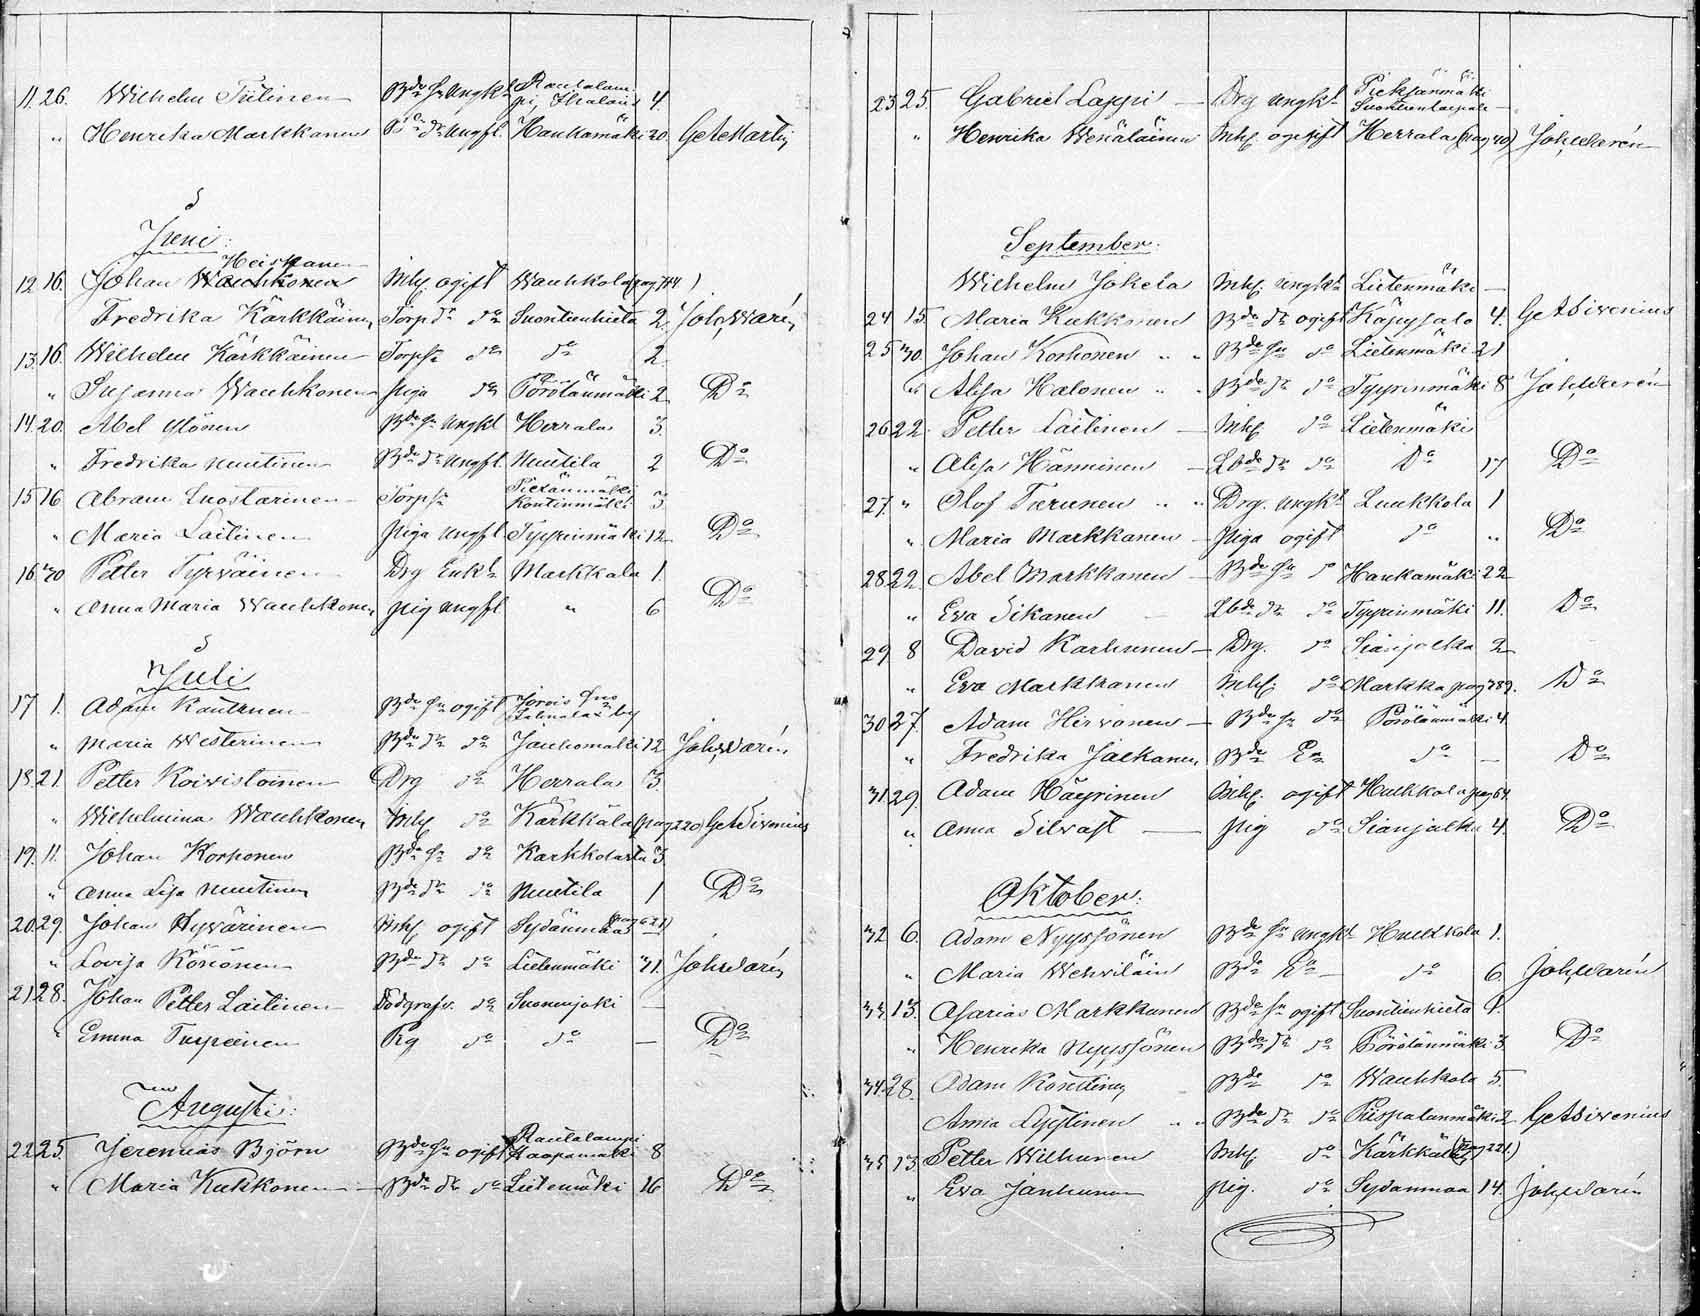 11. 26. Wilhelm Tiilinen Bde Sn Ungkl Rautalam
pi, Ihalais 4
" Henrika Markkanen Bde dr Ungfl. Haukamäki 20. GAMartin
Juni:
Heiskanen
12 16. Johan Wauhkonen Inhs. ogift Wauhkola (pag 744)
Fredrika Kärkkäinen Torp dr do Suontienhieta 2 Joh. Warén
13. 16. Wilhelm Kärkkäinen Torp Sn do do 2
" Susanna Wauhkonen piga do Pörölänmäki 2 Do
14. 20. Abel Ylönen Bde Sn Ungkl Herrala 3.
" Fredrika Nuutinen Bde dr Ungfl. Nuutila 2 Do
15 16 Abram Luostarinen Torp Sn Pieksänmäki
Kontinmäki 3
" Maria Laitinen piga Ungfl Tyyrinmäki 12 Do
16. 30 Petter Tyrväinen Drg Enkl. Markkala 1.
" Anna Maria Wauhkonen pig ungfl " 6 Do
Juli
17 1. Adam Kautunen Bde Sn ogift Jorois Sno
by
" Maria Westerinen Bde dr do Jauhomäki 12 Joh. Warén
18. 21. Petter Koivistoinen Drg do Herrala 3.
" Wilhelmina Wauhkonen Inhs do Kärkkälä (pag 220) GASivenius
19. 11. Johan Korhonen Bde Sn do Karkkolasta 3
" Anna Lisa Nuutinen Bde dr do Nuutila 1 Do
20. 29. Johan Hyvärinen Inhs ogift Sydänmaa (pag 621)
" Lovisa Könönen Bde dr do Lietenmäki 31. Joh. Warén
21. 28. Johan Petter Laitinen Dödgrafv. do Suonenjoki —
" Emma Turpeinen Pig do do — Do
Augusti:
22 25. Jeremias Björn Bde Sn ogift Rautalampi
Haapamäki 8
" Maria Kukkonen Bde dr do Lietemäki 16 Do
23 25. Gabriel Lappi Drg ungkl Pieksänmäki
Suontientaipale
" Henrika Wenäläinen Inhs. ogift Herrala (pag 40) Joh. Warén
September.
Wilhelm Jokela Inhs. Ungkl Lietenmäki —
24 15. Maria Kukkonen Bde dr ogift Käpysalo 4. GASivenius
25 30. Johan Korhonen " " Bde Sn do Lietenmäki 21
" Alisa Halonen " " Bde dr do Tyyrinmäki 8 Joh. Warén
26 22. Petter Laitinen Inhs do Lietenmäki
" Alisa Hänninen Lbde dr do Do 17 Do
27. " Olof Tarunen " " Drg. ungkl Luukkola 1
" Maria Markkanen piga ogift do " Do
28 22 Abel Markkanen Bde Sn do Haukamäki 22
" Eva Sikanen Lbde dr do Tyyrinmäki 11. Do
29 8 David Karhunen Drg. do Sianjalka 2
" Eva Markkanen Inhs. do Markka pag 789. Do
30 27. Adam Hirvonen Bde Sn do Pörölänmäki 4
" Fredrika Jalkanen Bde Ea do — Do
31. 29. Adam Häyrinen Inhs. ogift Huthkola pag 64.
" Anna Silvast — pig do Sianjalka 4. Do
Oktober:
32 6. Adam Nyyssönen Bde Sn ungkl Hulkkola 1.
" Maria Wehviläin Bde Ea do 6 Joh. Warén
33 13. Asarias Markkanen Bde Sn ogift Suontienhieta 4.
" Henrika Nyyssönen Bde dr do Pörölänmäki 3. Do
34. 28. Adam Konttinen Bde do Wauhkola 5.
Anna Lyytinen " " Bde dr do Puspalanmäki 2 GASivenius
35 13 Petter Wilhunen Inhs do Kärkkälä (pag 221.)
" Eva Janhunen pig. do Sydanmaa 14. Joh. Warén